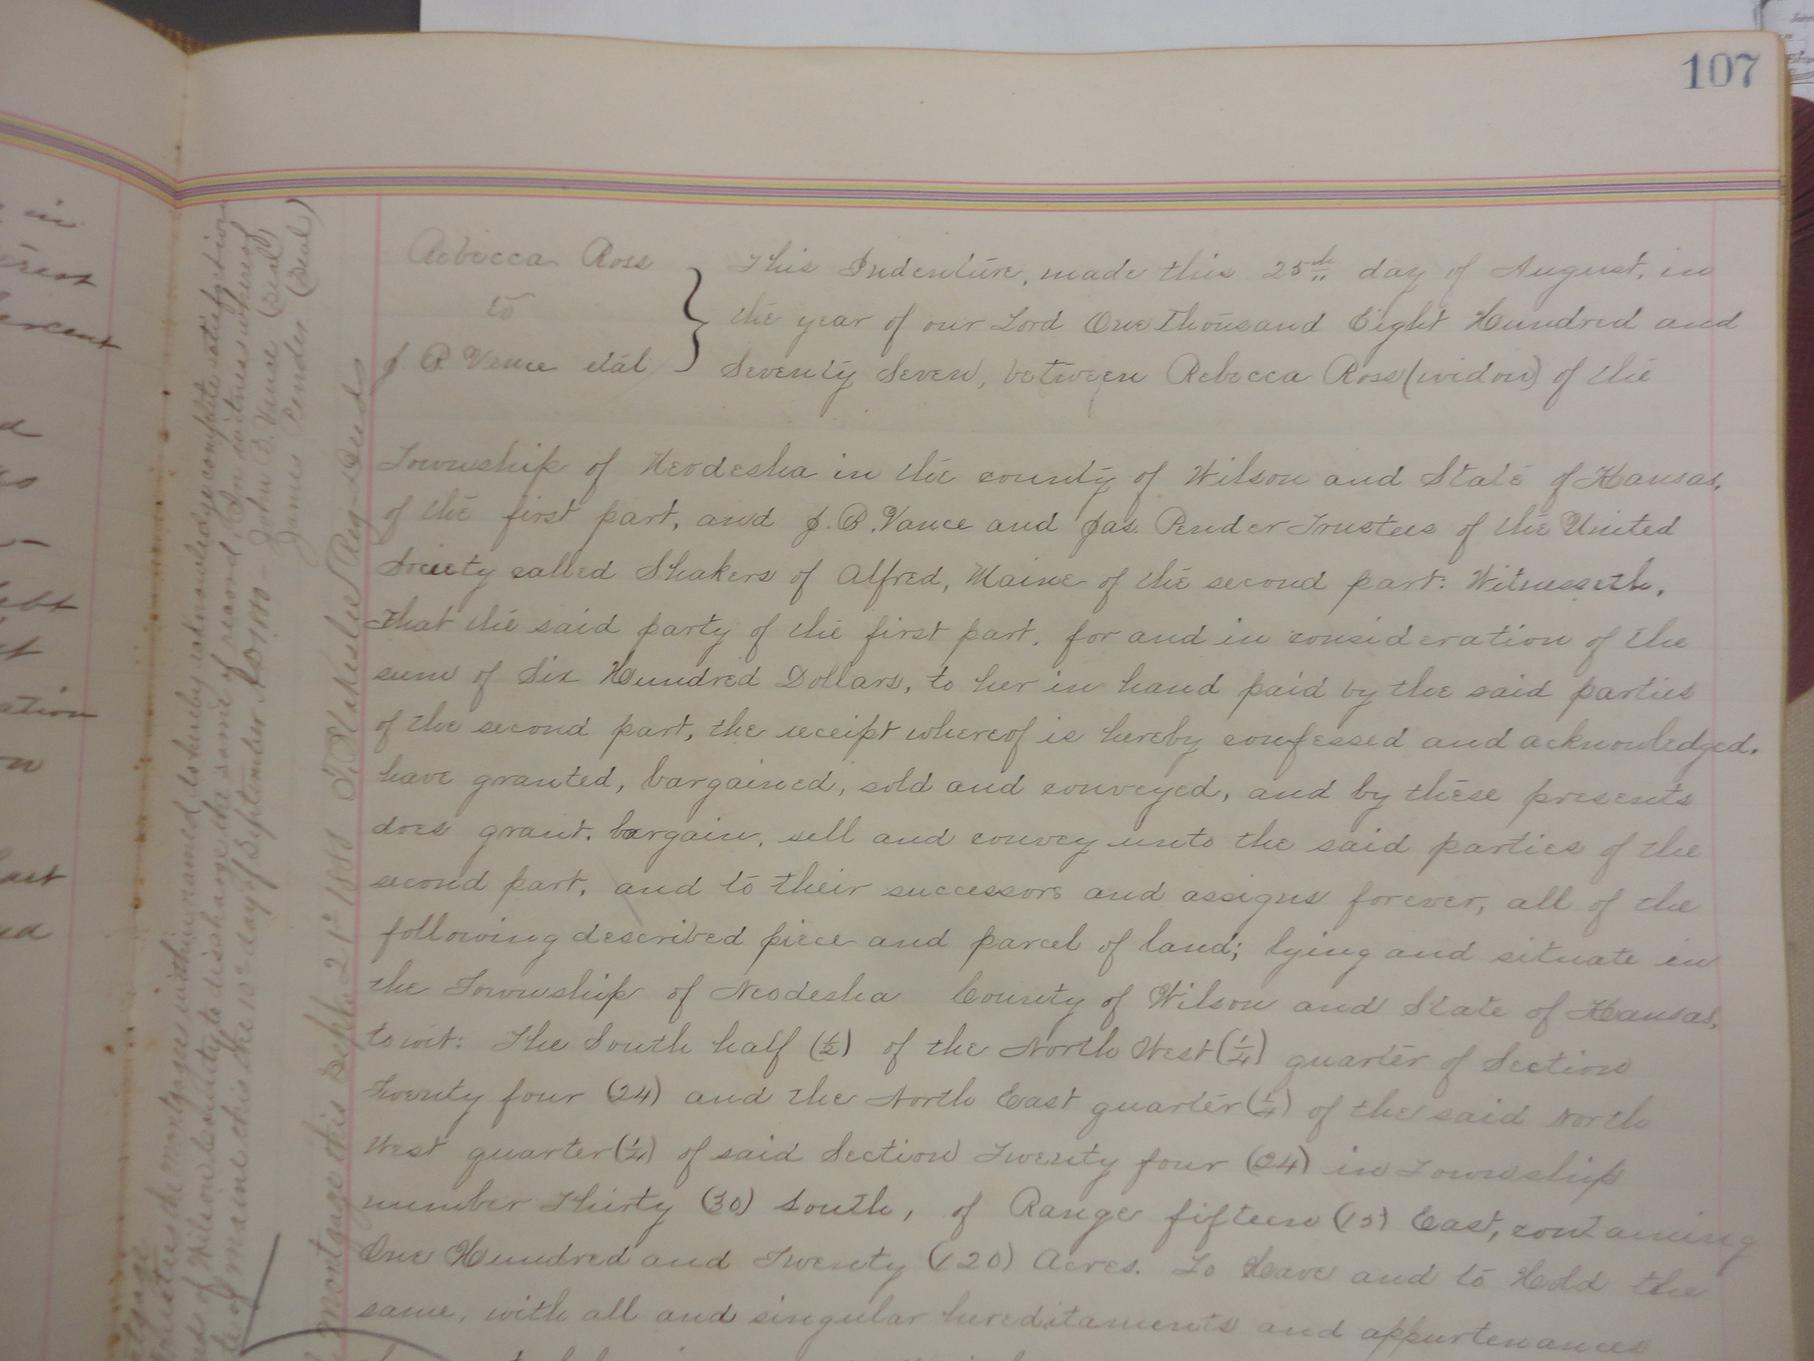 107
Rebecca Ross
to
J. B. Vance etal
This Indenture, made this 25th day of August, in
the year of our Lord One Thousand Eight Hundred and
Seventy Seven, between Rebecca Ross (widow) of the
Township of Neodesha in the county of Wilson and State of Kansas,
of the first part, and J. B. Vance and Jas. Pender Trustees of the United
Society called Shakers of Alfred, Maine of the second part: Witnesseth,
that the said party of the first part, for and in consideration of the
sum of Six Hundred Dollars, to her in hand paid by the said parties
of the second part, the receipt whereof is hereby confessed and acknowledged,
have granted, bargained, sold and conveyed, and by these presents
does grant, bargain, sell and convey unto the said parties of the
second part, and to their successors and assigns forever, all of the
following described piece and parcel of land; lying and situate in
the Township of Neodesha County of Wilson and State of Kansas,
to wit: The South half (1/2) of the North West (1/4) quarter of Section
Twenty four (24) and the North East quarter (1/4) of the said North
West quarter (1/4) of said Section Twenty four (24) in Township
number Thirty (30) South, of Range fifteen (15) East, containing
One Hundred and Twenty (120) Acres. To Have and to Hold the
same, with all and singular hereditaments and appurtenances
Trustees the mortgagees within named, do hereby acknowledge complete satisfaction
of Wilson County to discharge the same of record. In witness whereof
of Maine this the 10th day of September A.D. 1880 - John B. Vance (Seal)
James Pender (Seal)
mortgage this Sept. 21st 1880 Reg- Deeds
in
ercent
ation
on